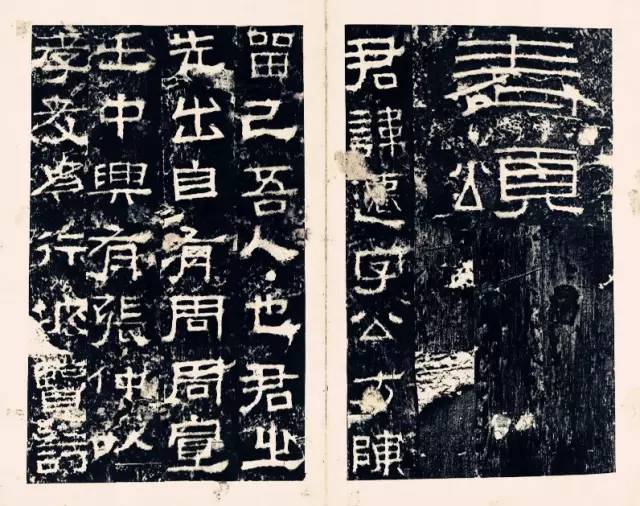 表頌
君諱遷字公方陳
留己吾人也君之
先出自有周周宣
王中興有張仲以
孝友為行披覽詩